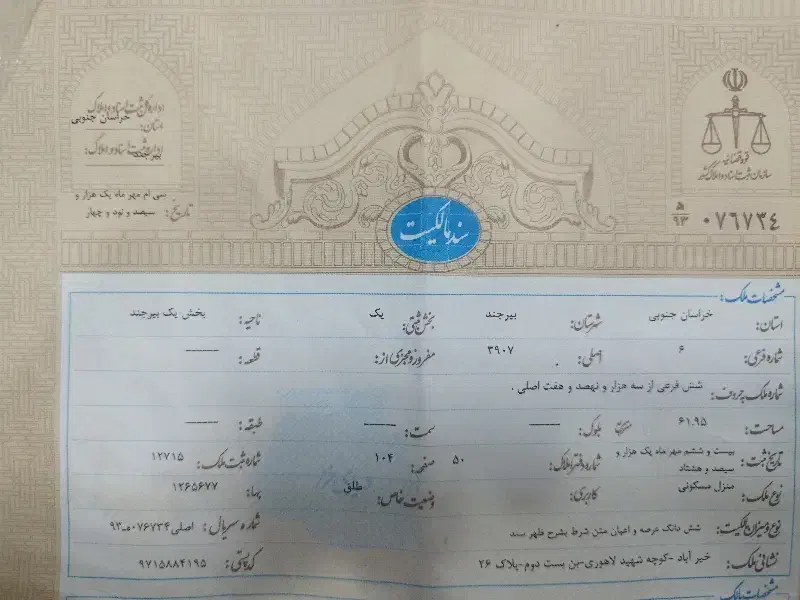 قوه قضائیه
سازمان ثبت اسناد و املاک کشور
اداره کل ثبت اسناد و املاک
استان: خراسان جنوبی
اداره ثبت اسناد و املاک: بیرجند
تاریخ: سی ام مهر ماه یک هزار و سیصد و نود و چهار
۰۷۶۷۳۴ ه‍ ۹۳
سند مالکیت
مشخصات ملک:
استان: خراسان جنوبی شهرستان: بیرجند بخش ثبتی: یک ناحیه: بخش یک بیرجند
شماره فرعی: ۶ اصلی: ۳۹۰۷ مفروز و مجزی از: قطعه:
شماره ملک به حروف: شش فرعی از سه هزار و نهصد و هفت اصلی .
مساحت: ۶۱.۹۵ بلوک: سمت: طبقه:
تاریخ ثبت: بیست و ششم مهر ماه یک هزار و سیصد و هشتاد شماره دفتر املاک: ۵۰ صفحه: ۱۰۴ شماره ثبت ملک: ۱۲۷۱۵
نوع ملک: منزل مسکونی کاربری: وضعیت خاص: طلق بها: ۱۲۶۵۶۷۷
نوع و میزان مالکیت: شش دانگ عرصه و اعیان متن شرط بشرح ظهر سند شماره سریال: اصلی ۰۷۶۷۳۴-ه-۹۳
نشانی ملک: خیر آباد -کوچه شهید لاهوری-بن بست دوم-پلاک ۲۶ کد پستی: ۹۷۱۵۸۸۴۱۹۵
مشخصات مالک: